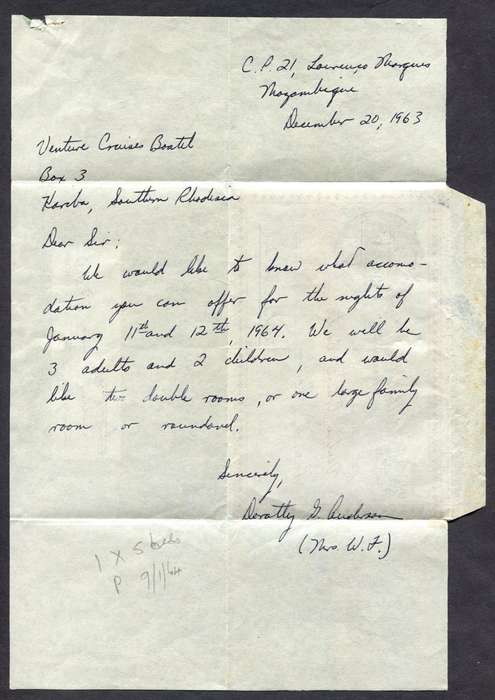 C.P. 21, Lourenço Marques
Mozambique
December 20, 1963
Venture Cruises Boatel
Box 3
Kariba, Southern Rhodesia
Dear Sir;
We would like to know what accomo-
dation you can offer for the nights of
January 11th and 12th, 1964. We will be
3 adults and 2 children, and would
like two double rooms, or one large family
room or roundavel.
Sincerely,
Dorothy G. Anderson
(Mrs W. F.)
1 X 5 beds
P 9/1/64